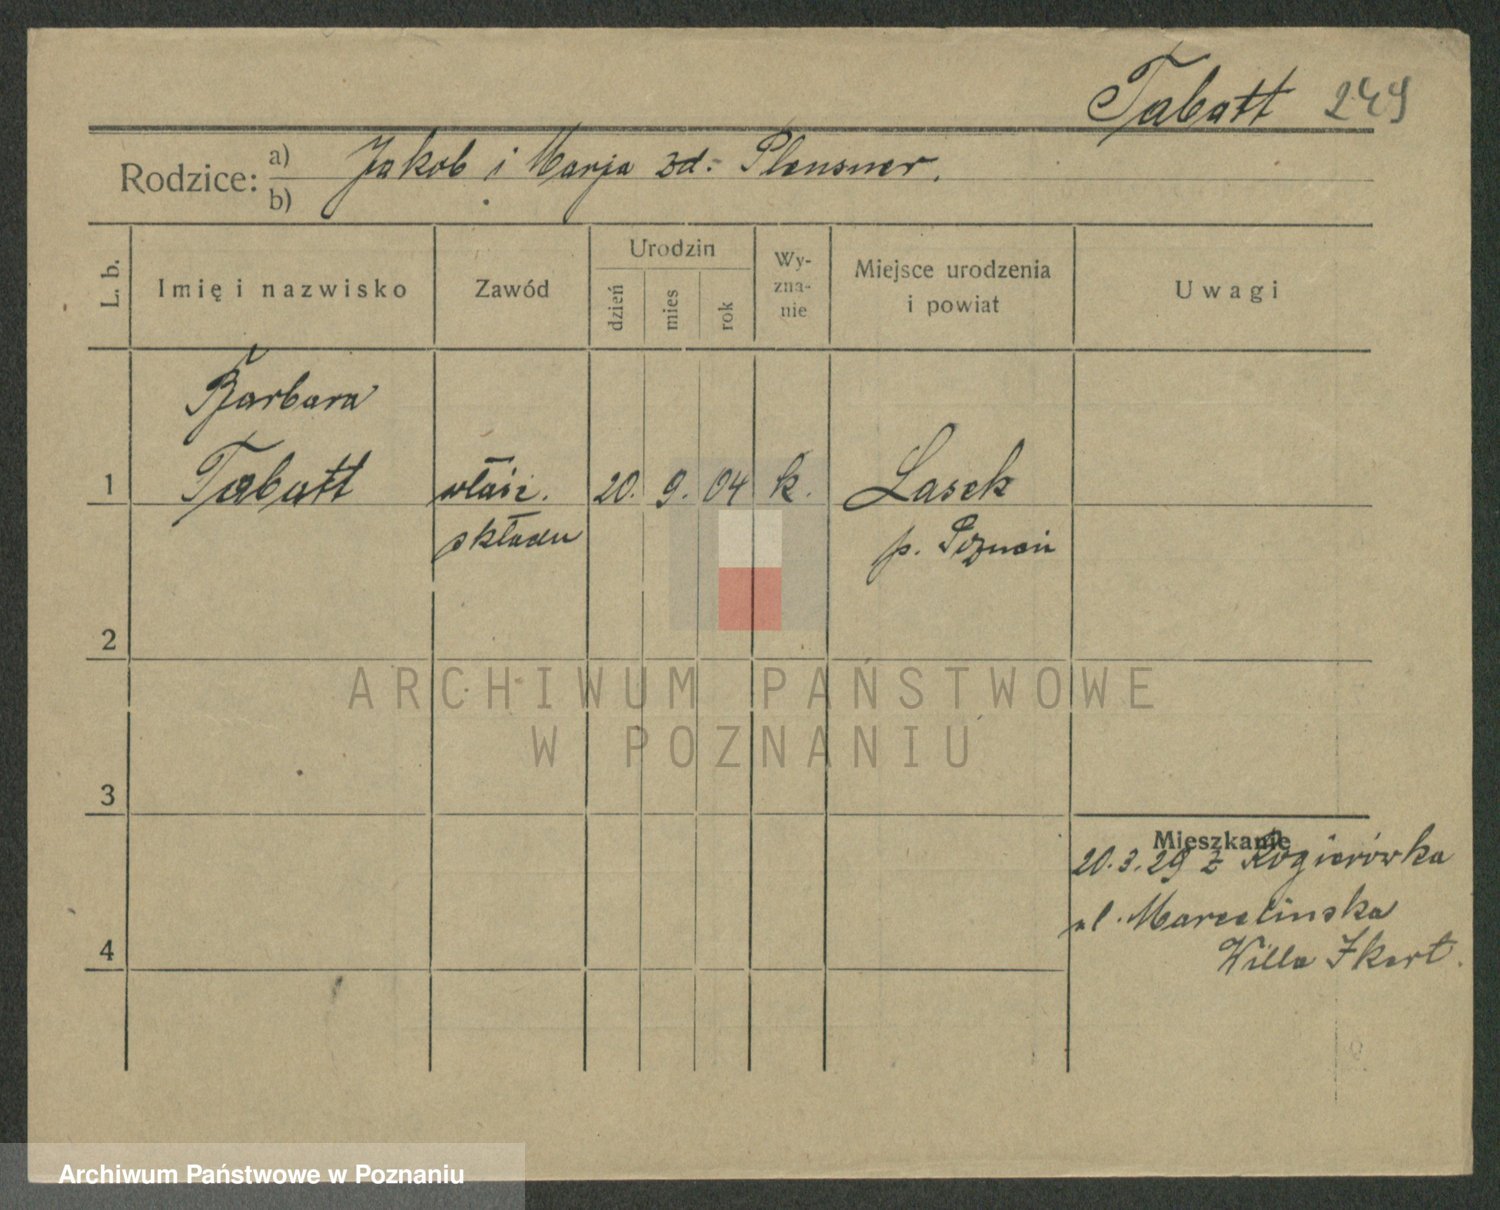 Tabatt 249
Rodzice: a) Jakob i Marja zd: Plensner.
b)
L. b.
Imię i nazwisko
Zawód
Urodzin
dzień
mies
rok
Wy-
zna-
nie
Miejsce urodzenia
i powiat
Uwagi
Barbara
1 Tabatt właśc. 20. 9. 04 k. Lasek
składu p. Poznań
2
ARCHIWUM PAŃSTWOWE
W POZNANIU
3
Mieszkanie
20.3.29 z Rogierówka
ul. Marcelinska
4 Willa
Archiwum Państwowe w Poznaniu